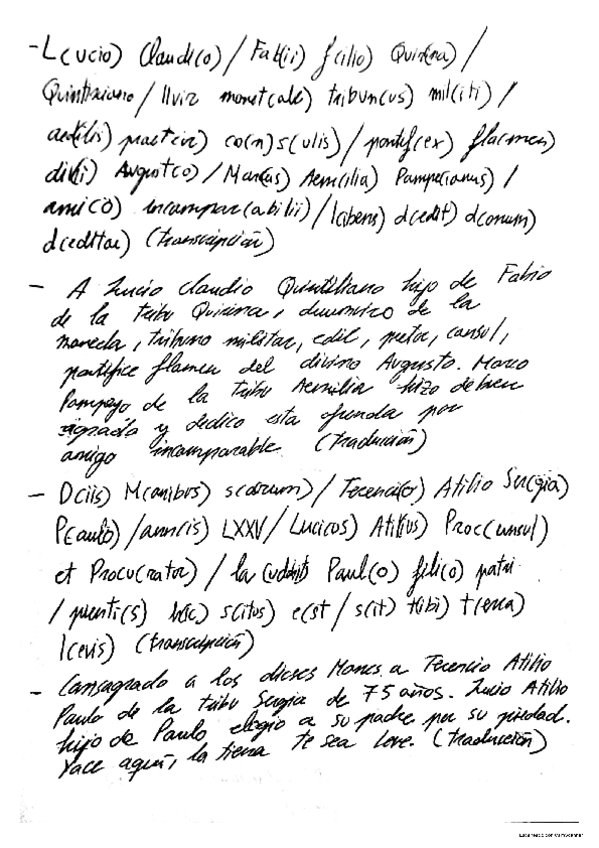 - L(ucio) Claudi(o) / Fab(ii) f(ilio) Quir(ina) /
Quintiliano / IIvir monet(ale) tribun(us) mil(iti) /
aedilis) praetor) co(n)s(ulis) / pontif(ex) fla(men)
divi(i) August(o) / Mar(cus) Aem(ilia) Pompe(ianus) /
amic(o) incompar(abilii) / l(ibens) d(edit) d(onum)
d(edit(ae) (transcripción)
- A Lucio Claudio Quintiliano hijo de Fabio
de la tribu Quirina, duunviro de la
moneda, tribuno militar, edil, pretor, consul,
pontifice flamen del divino Augusto. Marco
Pompeyo de la tribu Aemilia hizo de buen
agrado y dedico esta ofrenda por
amigo incomparable. (traducción)
- D(iis) M(anibus) s(acrum) / Terenci(o) Atilio Ser(gia)
P(aulo) / ann(is) LXXV / Luci(us) Atilius) Proc(unsul)
et Procu(rator) / la(udavit) Paul(o) fili(o) patri
/ pienti(s) h(ic) s(itus) e(st / s(it) t(ibi) t(erra)
l(evis) (transcripción)
- Consagrado a los dioses Manes a Terencio Atilio
Paulo de la tribu Sergia de 75 años. Lucio Atilio
hijo de Paulo elogio a su padre por su piedad.
Yace aquí, la tierra te sea leve. (traducción)